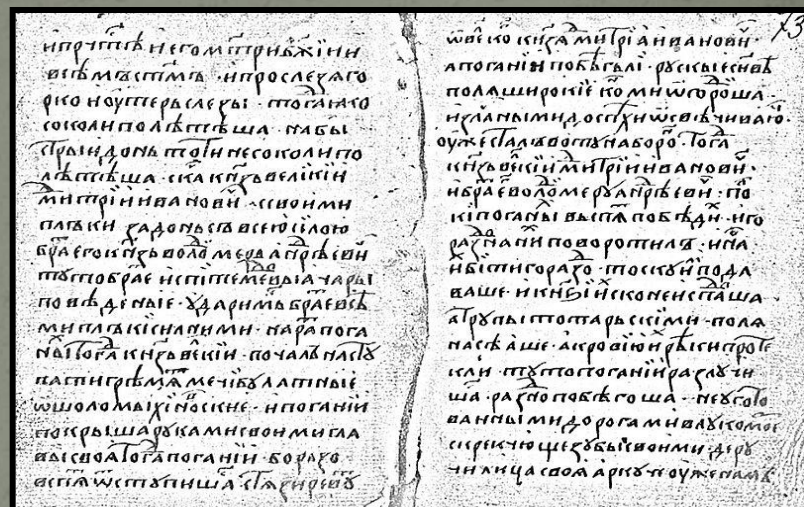 и пр҃чⷭ҇тѣи его мт҃ри бж҃їи и
всѣмъ ст҃ымъ · и прослезѧ го
рко и оутеръ слезы · тогⷣа ꙗко
соколи полѣтѣша · на бы
стрыи донъ тоти не соколи по
лѣтѣша · скаⷱ кнѧзь великїи
митрїи ивановиⷱ · с своими
плъки за донъ съ всею силою
браⷮ его кнѧзь володⷣмеръ андрѣевиⷱ
ту то браⷮе испїти медвⷣны ꙗ чары
поведеные · ударимъ браⷮе свѣ
ми плъкї силними · на раⷮ пога
ныⷯ тогⷣа кнѧзь веⷧкїи · почалъ насту
пати грѣмѧⷮ мечї булатные
ѡ шоломы хїновⷭские · и поганїи
покрыша руками своими гла
вы своѧ тогⷣа поганїи · борзо
вспѧⷮ ѿступиша · стѧзи ревуⷮ
ѿ веⷧко кнѧзѧ митрїа ивановиⷱ ·
а поганїи побѣгълї · рускые сн҃вѣ
полѧ широкїе кликоⷨ ѡгородиша ·
и злаⷱными доспѣхи ѡсвѣчиваюⷮ ·
оуже сталъ во тур на бороⷩ · тогⷣа
кнѧзь веⷧкїи митрїи ивановиⷱ ·
и браⷮ его володⷣмеръ андрѣевиⷱ · поⷧ
кї поганыⷯ вспѧⷮ побѣдиⷧ · и го
разⷣно
поворотилъ · и наⷱ
иⷯ бїти гораздо · тоскуⷩ иⷨ пода
ваше · и кнѧзи иⷯ с конеи спаⷣша
а трупы тотарьскїми · полѧ
насѣаше · а кровїю иⷯ рѣки проте
кли · ту то поганїи разлучи
ша · разно побѣгоша · неуготоⷡ
ванными дорогами в лукомоⷬе
скрекчюще зубы своими · деру
чи лица своѧ а ркуче оуже намъ